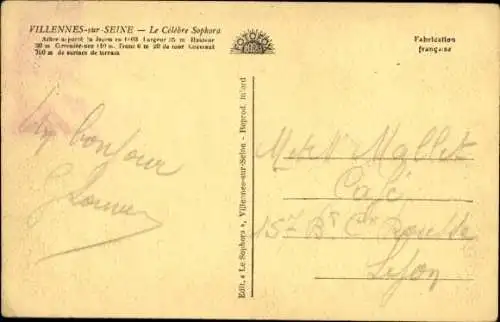 VILLENNES-sur-SEINE - Le Célèbre Sophora
Arbre importé du Japon en Largeur 35 m Hauteur
20 m Circonférence 110 m. Tronc 6 m 20 de tour Couvrant
700 m de surface de terrain.
Fabrication
française
Un bonjour
Edit. « Le Sophora », Villennes-sur-Seine - Reprod. interd
Mallet
Café
15
Lyon